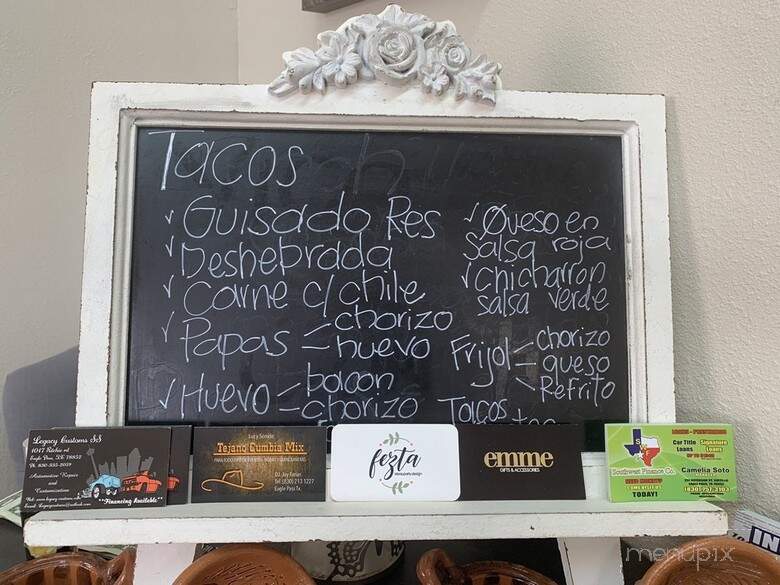 Tacos
✓ Guisado Res
✓ Deshebrada
✓ Carne c/ chile
✓ Papas - chorizo
- huevo
✓ Huevo - bacon
- chorizo
✓ Queso en
salsa roja
✓ Chicharron
salsa verde
Frijol - chorizo
- queso
- Refrito
Tacos
Legacy Customs SS
1017 Ritchie rd
Eagle Pass, TX 78852
Ph. 830-335-2059
Automotive Repair
and
Customization
"Financing Available"
Tejano Cumbia Mix
DJ Jay Farias
Tel (830) 213 1227
Eagle Pass Tx.
fezta
emme
GIFTS & ACCESSORIES
Southwest Finance Co.
Car Title
Loans
Signature
Loans
Camelia Soto
(830) 757-3103
COME VISIT US
TODAY!
IN
menupix